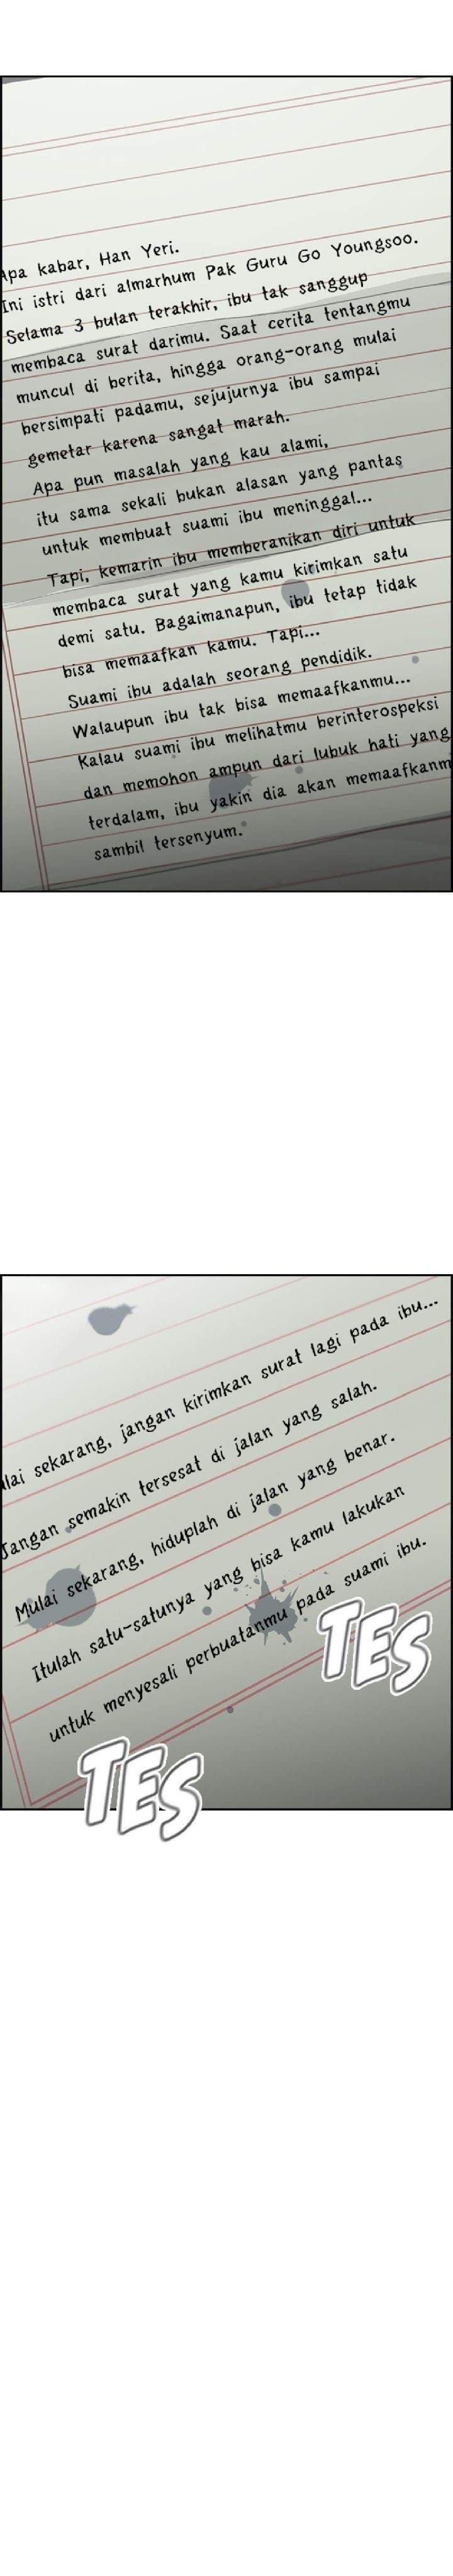 Apa kabar, Han Yeri.
Ini istri dari almarhum Pak Guru Go Youngsoo.
Selama 3 bulan terakhir, ibu tak sanggup
membaca surat darimu. Saat cerita tentangmu
muncul di berita, hingga orang-orang mulai
bersimpati padamu, sejujurnya ibu sampai
gemetar karena sangat marah.
Apa pun masalah yang kau alami,
itu sama sekali bukan alasan yang pantas
untuk membuat suami ibu meninggal...
Tapi, kemarin ibu memberanikan diri untuk
membaca surat yang kamu kirimkan satu
demi satu. Bagaimanapun, ibu tetap tidak
bisa memaafkan kamu. Tapi...
Suami ibu adalah seorang pendidik.
Walaupun ibu tak bisa memaafkanmu...
Kalau suami ibu melihatmu berinterospeksi
dan memohon ampun dari lubuk hati yang
terdalam, ibu yakin dia akan memaafkanm
sambil tersenyum.
ulai sekarang, jangan kirimkan surat lagi pada ibu...
Jangan semakin tersesat di jalan yang salah.
Mulai sekarang, hiduplah di jalan yang benar.
Itulah satu-satunya yang bisa kamu lakukan
untuk menyesali perbuatanmu pada suami ibu.
TES
TES